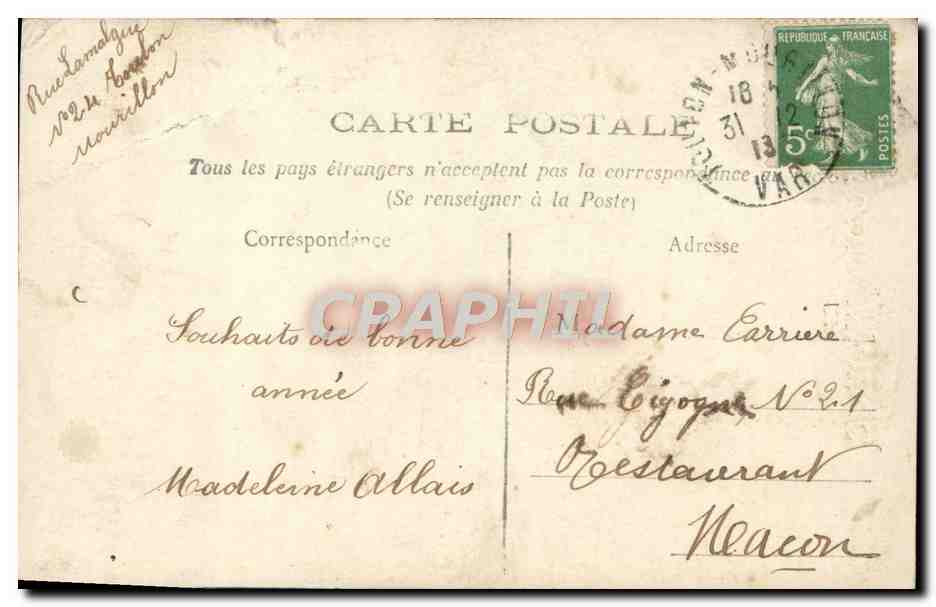 Rue Lamalgue
N° 24 Toulon
Mourillon
REPUBLIQUE FRANÇAISE
5c
POSTES
18
31 12
13
VAR
CARTE POSTALE
Tous les pays étrangers n'acceptent pas la correspondance au
(Se renseigner à la Poste)
Correspondance
Adresse
CRAPHIL
Souhaits de bonne
année
Madeleine Allais
Madame Carrière
Rue Cigogne N° 21
Restaurant
Macon